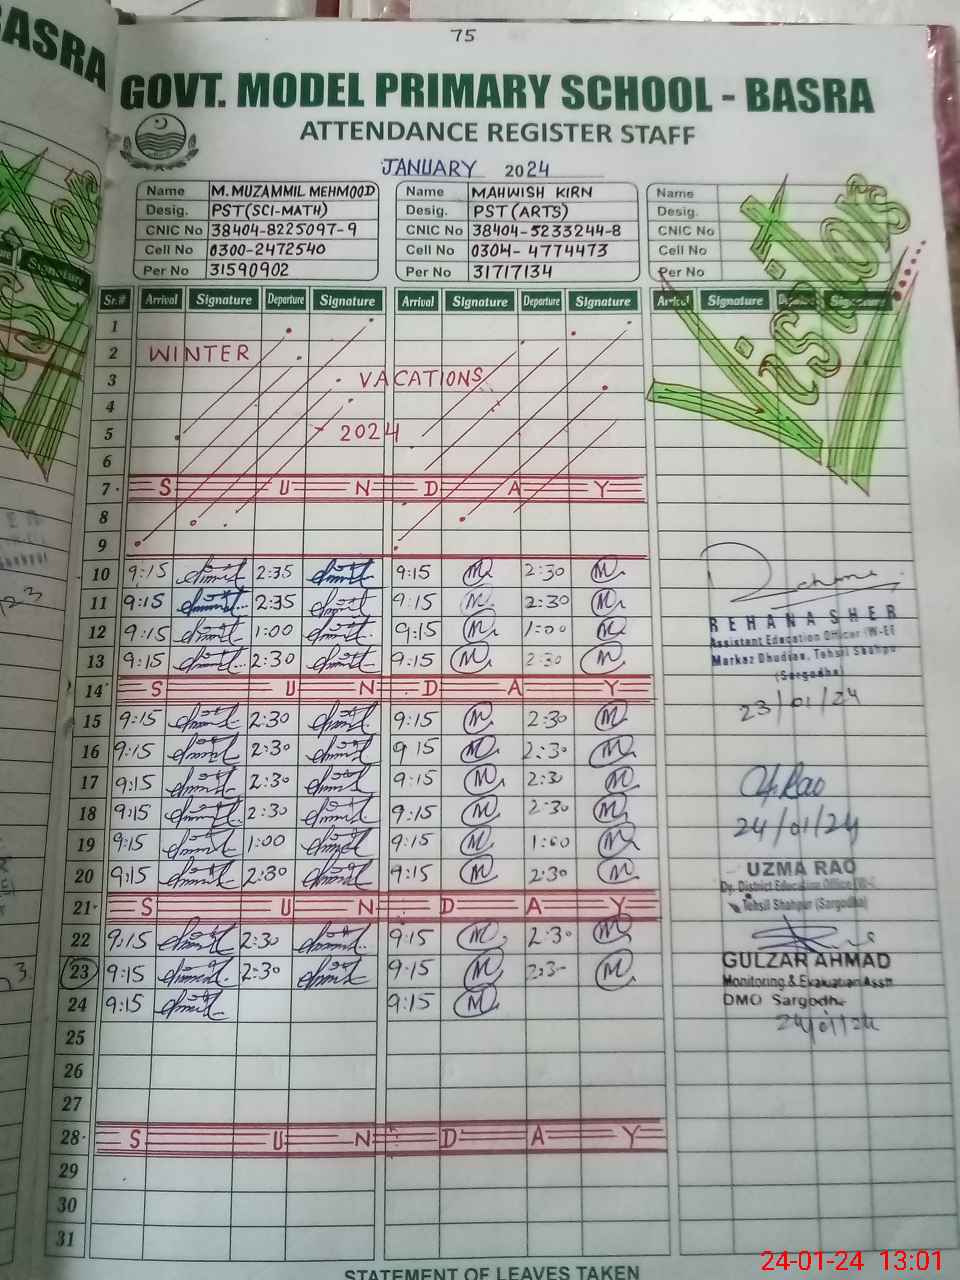 BASRA
75
GOVT. MODEL PRIMARY SCHOOL - BASRA
ATTENDANCE REGISTER STAFF
JANUARY 2024
Name M. MUZAMMIL MEHMOOD Name MAHWISH KIRN Name
Desig. PST(SCI-MATH) Desig. PST (ARTS) Desig.
CNIC No 38404-8225097-9 CNIC No 38404-5233244-8 CNIC No
Cell No 0300-2472540 Cell No 0304-4774473 Cell No
Per No 31590902 Per No 31717134 Per No
Visitors
Sr.# Arrival Signature Departure Signature Arrival Signature Departure Signature Arrival Signature Signature
1
2 WINTER
3 VACATIONS
4
5 2024
6
7 S U N D A Y
8
9
10 9:15 2:35 9:15 M 2:30 M
11 9:15 2:35 9:15 M 2:30 M
12 9:15 1:00 9:15 M 1:00 M
13 9:15 2:30 9:15 M 2:30 M
REHANA SHER
Assistant Education Officer (W-EE
Markaz Dhudias, Tehsil Shahpu
(Sargodha)
14 S U N D A Y
23/01/24
15 9:15 2:30 9:15 M 2:30 M
16 9:15 2:30 9 15 M 2:30 M
17 9:15 2:30 9:15 M 2:30 M
Rao
18 9:15 2:30 9:15 M 2:30 M
24/01/24
19 9:15 1:00 9:15 M 1:00 M
20 9:15 2:30 9:15 M 2:30 M
UZMA RAO
Dy. District Education Officer (W-
Tehsil Shahpur (Sargodha)
21 S U N D A Y
22 9:15 2:30 9:15 M 2:30 M
23 9:15 2:30 9:15 M 2:3- M
GULZAR AHMAD
Monitoring & Evaluation Asstt
DMO Sargodha
24/01/24
24 9:15 9:15 M
25
26
27
28 S U N D A Y
29
30
31
STATEMENT OF LEAVES TAKEN
24-01-24 13:01